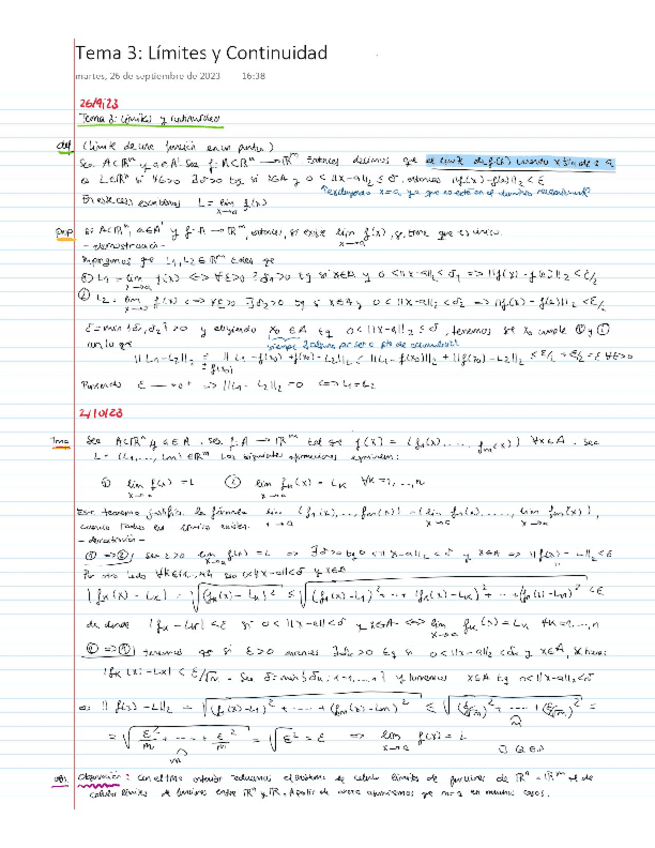 Tema 3: Límites y Continuidad
martes, 26 de septiembre de 2023 16:38
26/9/23
Tema 3: Límites y continuidad
def (límite de una función en un punto)
Sea A⊂ℝⁿ y a∈A'. Sea f: A⊂ℝⁿ → ℝᵐ entonces decimos que el límite de f(x) cuando x tiende a a
es L∈ℝᵐ si ∀ε>0 ∃δ>0 tq si x∈A y 0<||x-a||₂ ≤ δ, entonces
En ese caso escribimos L = lim f(x)
x→a
prop Si A⊂ℝⁿ, a∈A' y f: A→ℝᵐ, entonces, si existe lim f(x), se tiene que es único.
x→a
- demostración -
Supongamos que L₁, L₂∈ℝᵐ tales que
① L₁ = lim f(x) <=> ∀ε>0 ∃δ₁>0 tq si x∈A y 0<||x-a||₂<δ₁ =>
② L₂ = lim f(x) <=> ∀ε>0 ∃δ₂>0 tq si x∈A y 0<||x-a||₂<δ₂ =>
δ=min{δ₁,δ₂}>0 y eligiendo x₀∈A tq 0<||x-a||₂≤δ, tenemos que se cumple ① y ②
con lo que
||L₁-L₂||₂ = ||L₁-f(x₀)+f(x₀)-L₂||₂ ≤ ||L₁-f(x₀)||₂ + ||f(x₀)-L₂||₂ ≤ ε/2 + ε/2 = ε ∀ε>0
± f(x₀)
Pasando ε → 0⁺ => ||L₁-L₂||₂ = 0 <=> L₁=L₂
2/10/23
Tma Sea A⊂ℝⁿ y a∈A. Sea f: A→ℝᵐ tal que f(x) = (f₁(x),..., fₘ(x)) ∀x∈A. Sea
L = (L₁,..., Lₘ)∈ℝᵐ Las siguientes afirmaciones equivalen:
① lim f(x) = L ② lim fₖ(x) = Lₖ ∀k=1,...,n
x→a x→a
Este teorema justifica la fórmula lim (f₁(x),... fₘ(x)) = (lim f₁(x),..., lim fₘ(x)),
cuando todos los límites existen. x→a x→a x→a
- demostración -
① => ② Sea ε>0 lim f(x) = L => ∃δ>0 tq 0<||x-a||₂<δ y x∈A => ||f(x)-L||₂<ε
x→a
Por otro lado ∀k∈ 0<||x-a||<δ y x∈A
|fₖ(x)-Lₖ| = √(fₖ(x)-Lₖ)² ≤ √(f₁(x)-L₁)²+...+(fₖ(x)-Lₖ)²+...+(fₙ(x)-Lₙ)² <ε
de donde |fₖ-Lₖ|<ε si 0<||x-a||<δ y x∈A <=> lim fₖ(x) = Lₖ ∀k=1,...,n
x→a
② => ① tenemos que si ε>0 ∃δₖ>0 tq si 0<||x-a||₂<δₖ y x∈A,
|fₖ(x)-Lₖ| < ε/√m. Sea δ=min{δₖ: k=1,...,n} y tomemos x∈A tq 0<||x-a||₂<δ
||f(x)-L||₂ = √(f₁(x)-L₁)²+...+(fₘ(x)-Lₘ)² ≤ √(ε/√m)²+...+(ε/√m)² =
= √ε²/m+...+ε²/m = √ε² = ε => lim f(x) = L
m x→a Q.E.D
obs Observación: Con el tma anterior reducimos el problema de calcular límites de funciones de ℝⁿ → ℝᵐ al de
calcular límites de funciones entre ℝⁿ y ℝ. A partir de ahora asumiremos que m=1 en muchos casos.